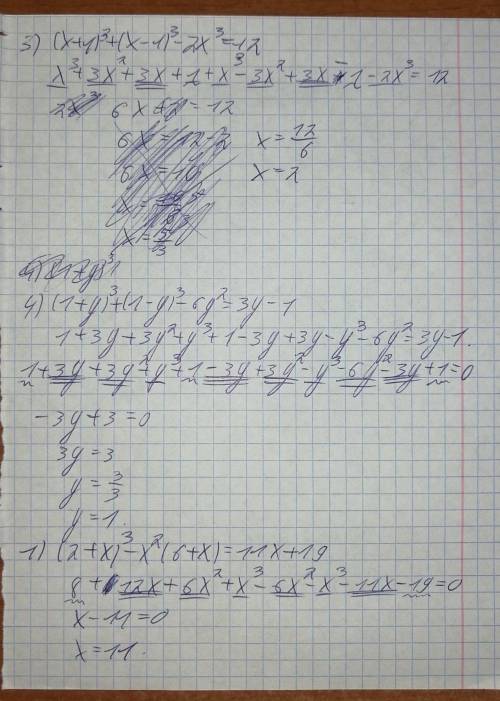 3) (x+1)³+(x-1)³-2x³=12
x³+3x²+3x+1+x³-3x²+3x-1-2x³=12
6x=12
x=12/6
x=2
4) (1+y)³+(1-y)³-6y²=3y-1
1+3y+3y²+y³+1-3y+3y-y³-6y²=3y-1.
1+3y+3y²+y³+1-3y+3y²-y³-6y²-3y+1=0
-3y+3=0
3y=3
y=3/3
y=1.
1) (2+x)³-x²(6+x)=11x+19
8+12x+6x²+x³-6x²-x³-11x-19=0
x-11=0
x=11.